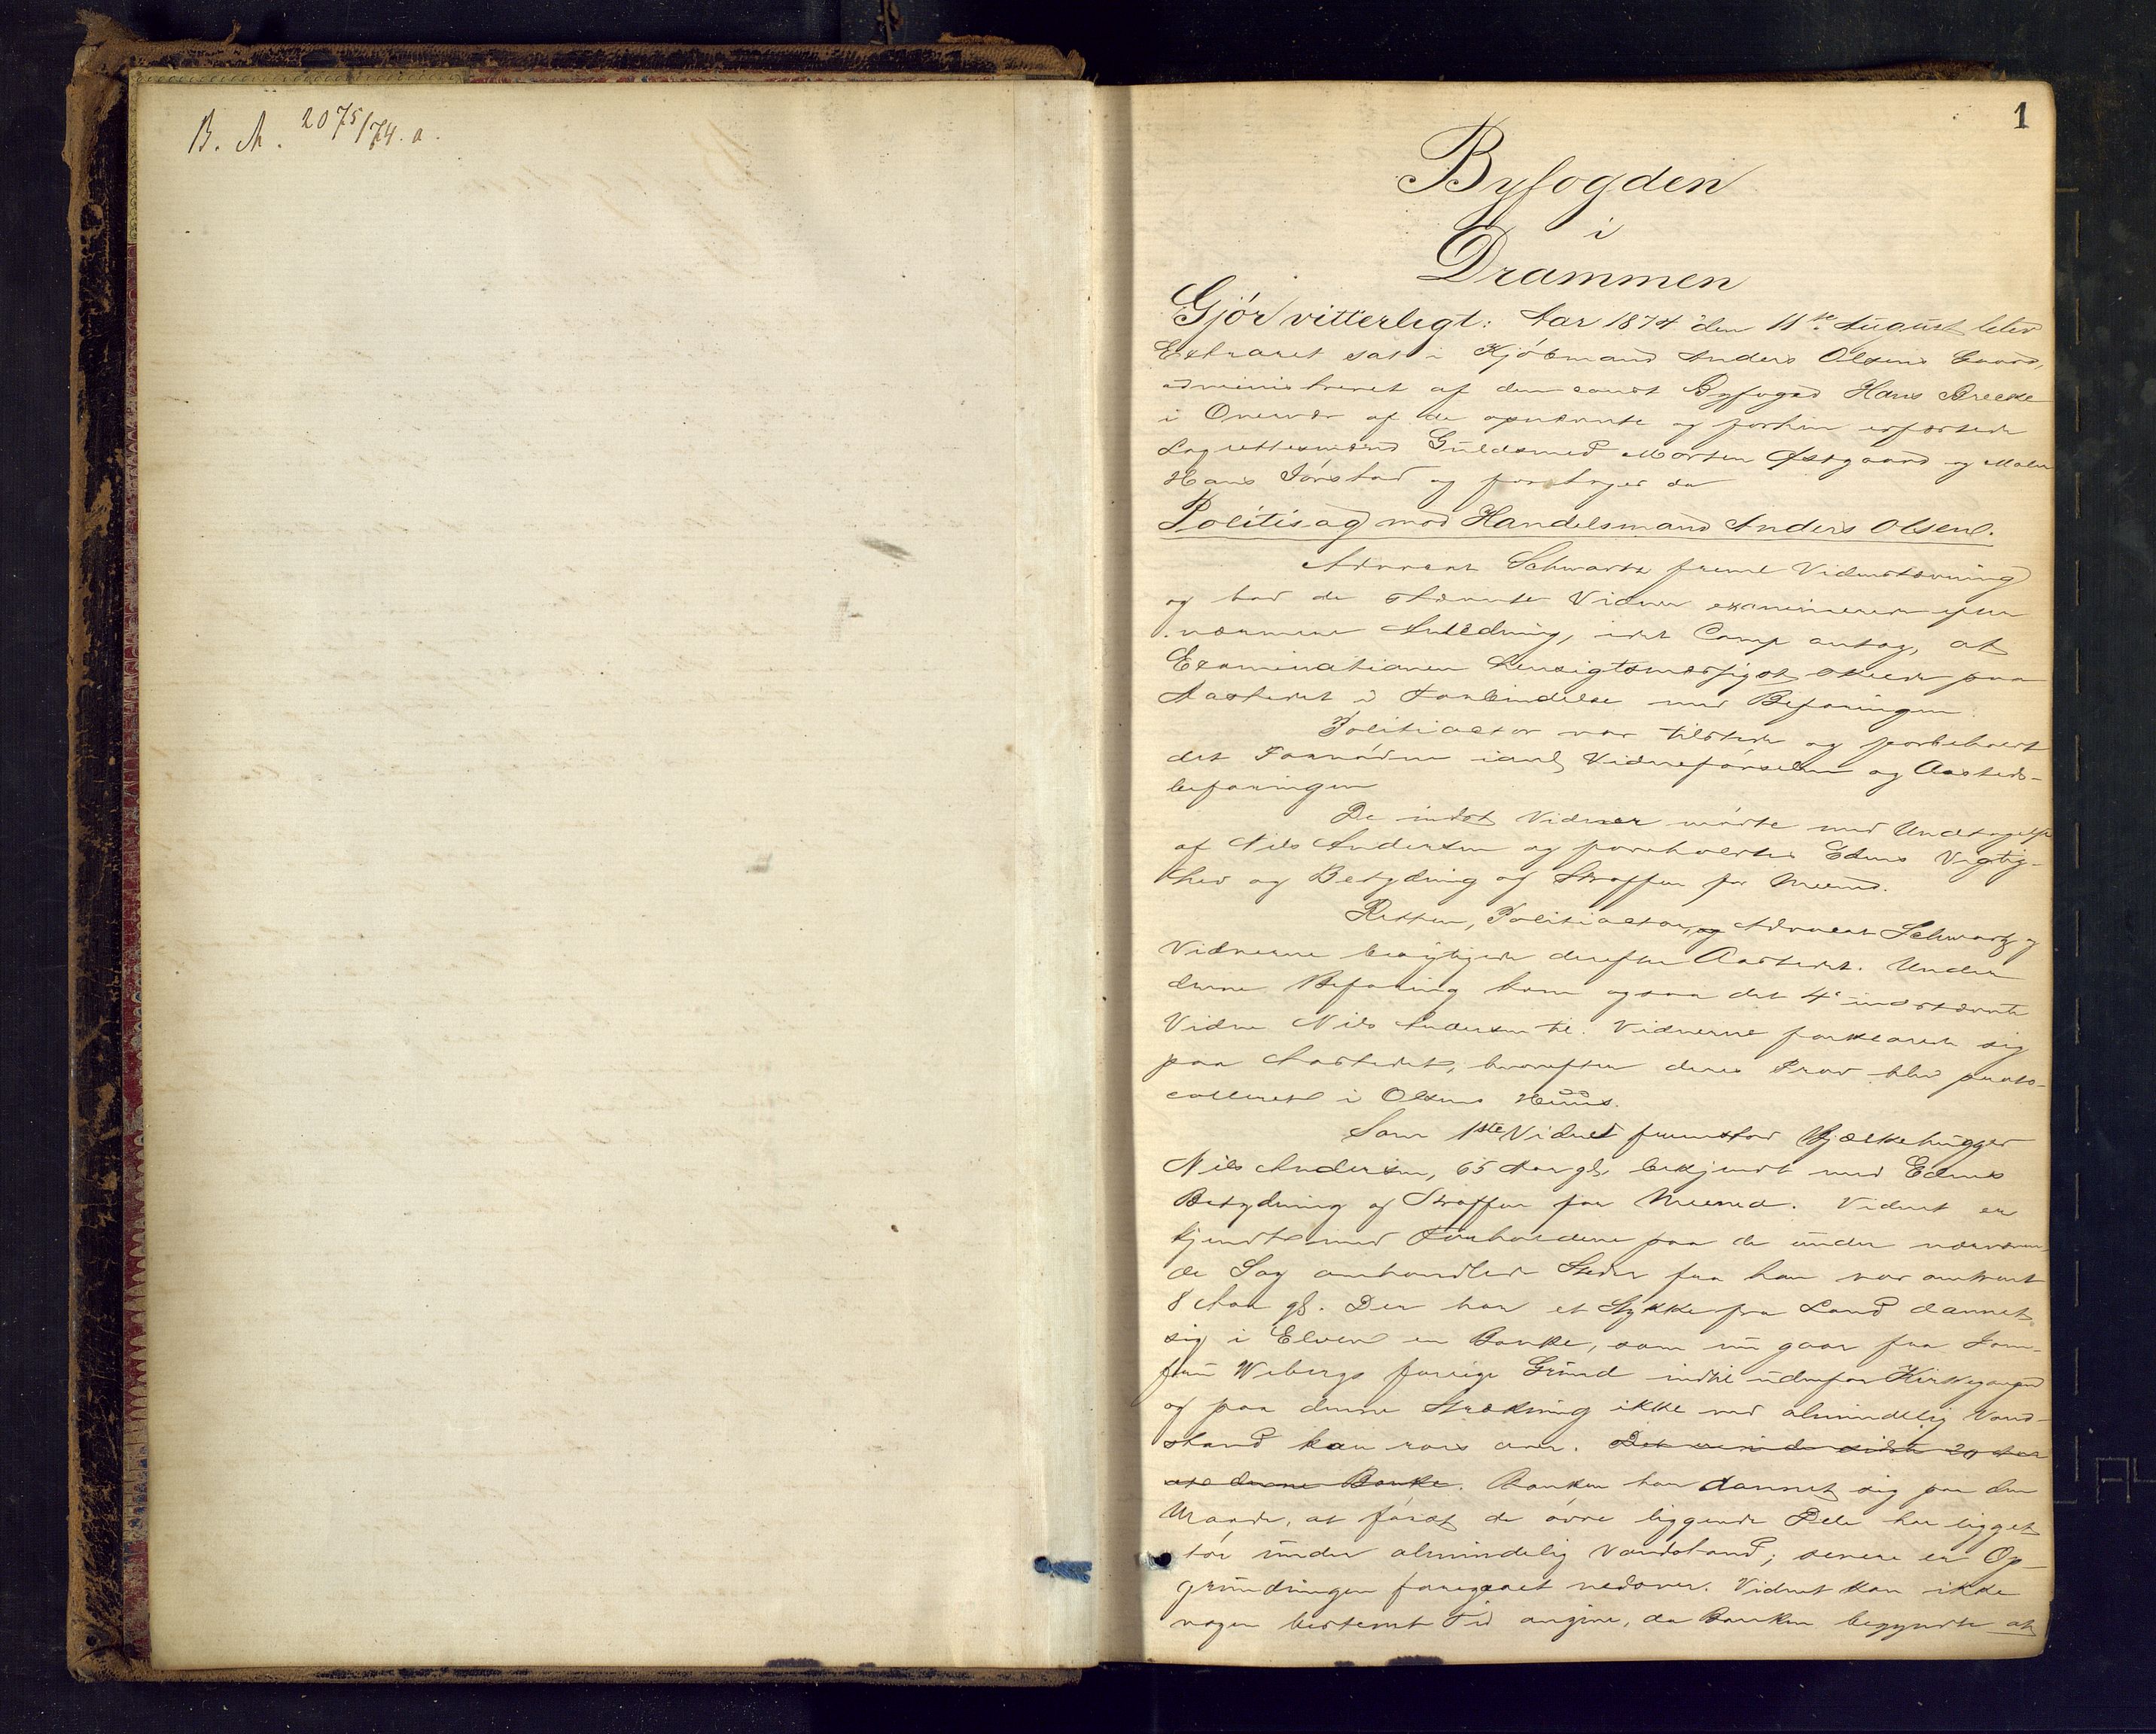 B. A. 2075/74. a.
1
Byfogden
i
Drammen
Gjör vitterligt: Aar 1874 den 11te August blev
Extraret sat i Kjöbmand Anders Olsens Gaard,
administreret af den const Byfogd Hans
i Overvær af de opnævnte og forhen
Lagrettesmænd Guldsmed Morten Østgaard og Maler
Hans og foretoges da
Politisag mod Handelsmand Anders Olsen.
Advocat Schwartz freml Vidnestævning
og bad de stævnte Vidner examinerede efter
nærmere Anledning, idet Comp antog, at
Examinationen hensigtsmæssigst skede paa
Aastedet i Forbindelse med Befaringen.
Politiactor var tilstede og forbeholdt
det Fornödne ianl Vidneförselen og Aasteds-
befaringen
De indst Vidner mödte med Undtagelse
af Nils Andersen og foreholdtes Edens Vigtig-
hed og Betydning og Straffen for Meened.
Retten, Politiactor, og Advocat Schwartz og
Vidnerne besigtigede derefter Aastedet. Under
denne Befaring kom ogsaa det 4de indstævnte
Vidne Nils Andersen til. Vidnerne forklarede sig
paa Aastedet, hvorefter deres Prov blev proto-
colleret i Olsens Huus.
Som 1ste Vidne fremstod Bjælkehugger
Nils Andersen, 65 Aar gl, bekjendt med Edens
Betydning og Straffen for Meened. Vidnet er
kjendt med Forholdene paa de under nærværen-
de Sag omhandlede Steder fra han var omtrent
8 Aar gl. Der har et Stykke fra Land dannet
sig i Elven en Banke, som nu gaar fra Jom-
fru Wibergs forrige Grund indtil udenfor Kirkegaarden
og paa denne Strækning ikke ved almindelig Vand-
stand kan roes over. Det er 20 Aar
denne Banke. Banken har dannet sig paa den
Maade, at först de övre liggende Dele har ligget
tör under almindelig Vandstand; senere er Op-
grundingen foregaaet nedover. Vidnet kan ikke
nogen bestemt Tid angive, da Banken begyndte at